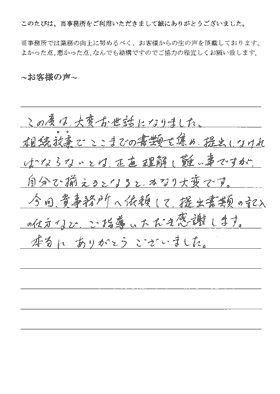 このたびは、当事務所をご利用いただきまして誠にありがとうございました。
当事務所では業務の向上に努めるべく、お客様からの生の声を頂戴しております。
よかった点、悪かった点、なんでも結構ですのでご協力の程宜しくお願い致します。
~お客様の声~
この度は、大変お世話になりました。
相続放棄でここまでの書類を集め、提出しなけれ
ばならないとは、正直理解し難い事ですが、
自分で揃えるとなると、かなり大変です。
今回、貴事務所へ依頼して、提出書類の記入
の仕方など、ご指導いただき感謝します。
本当に ありがとう ございました。